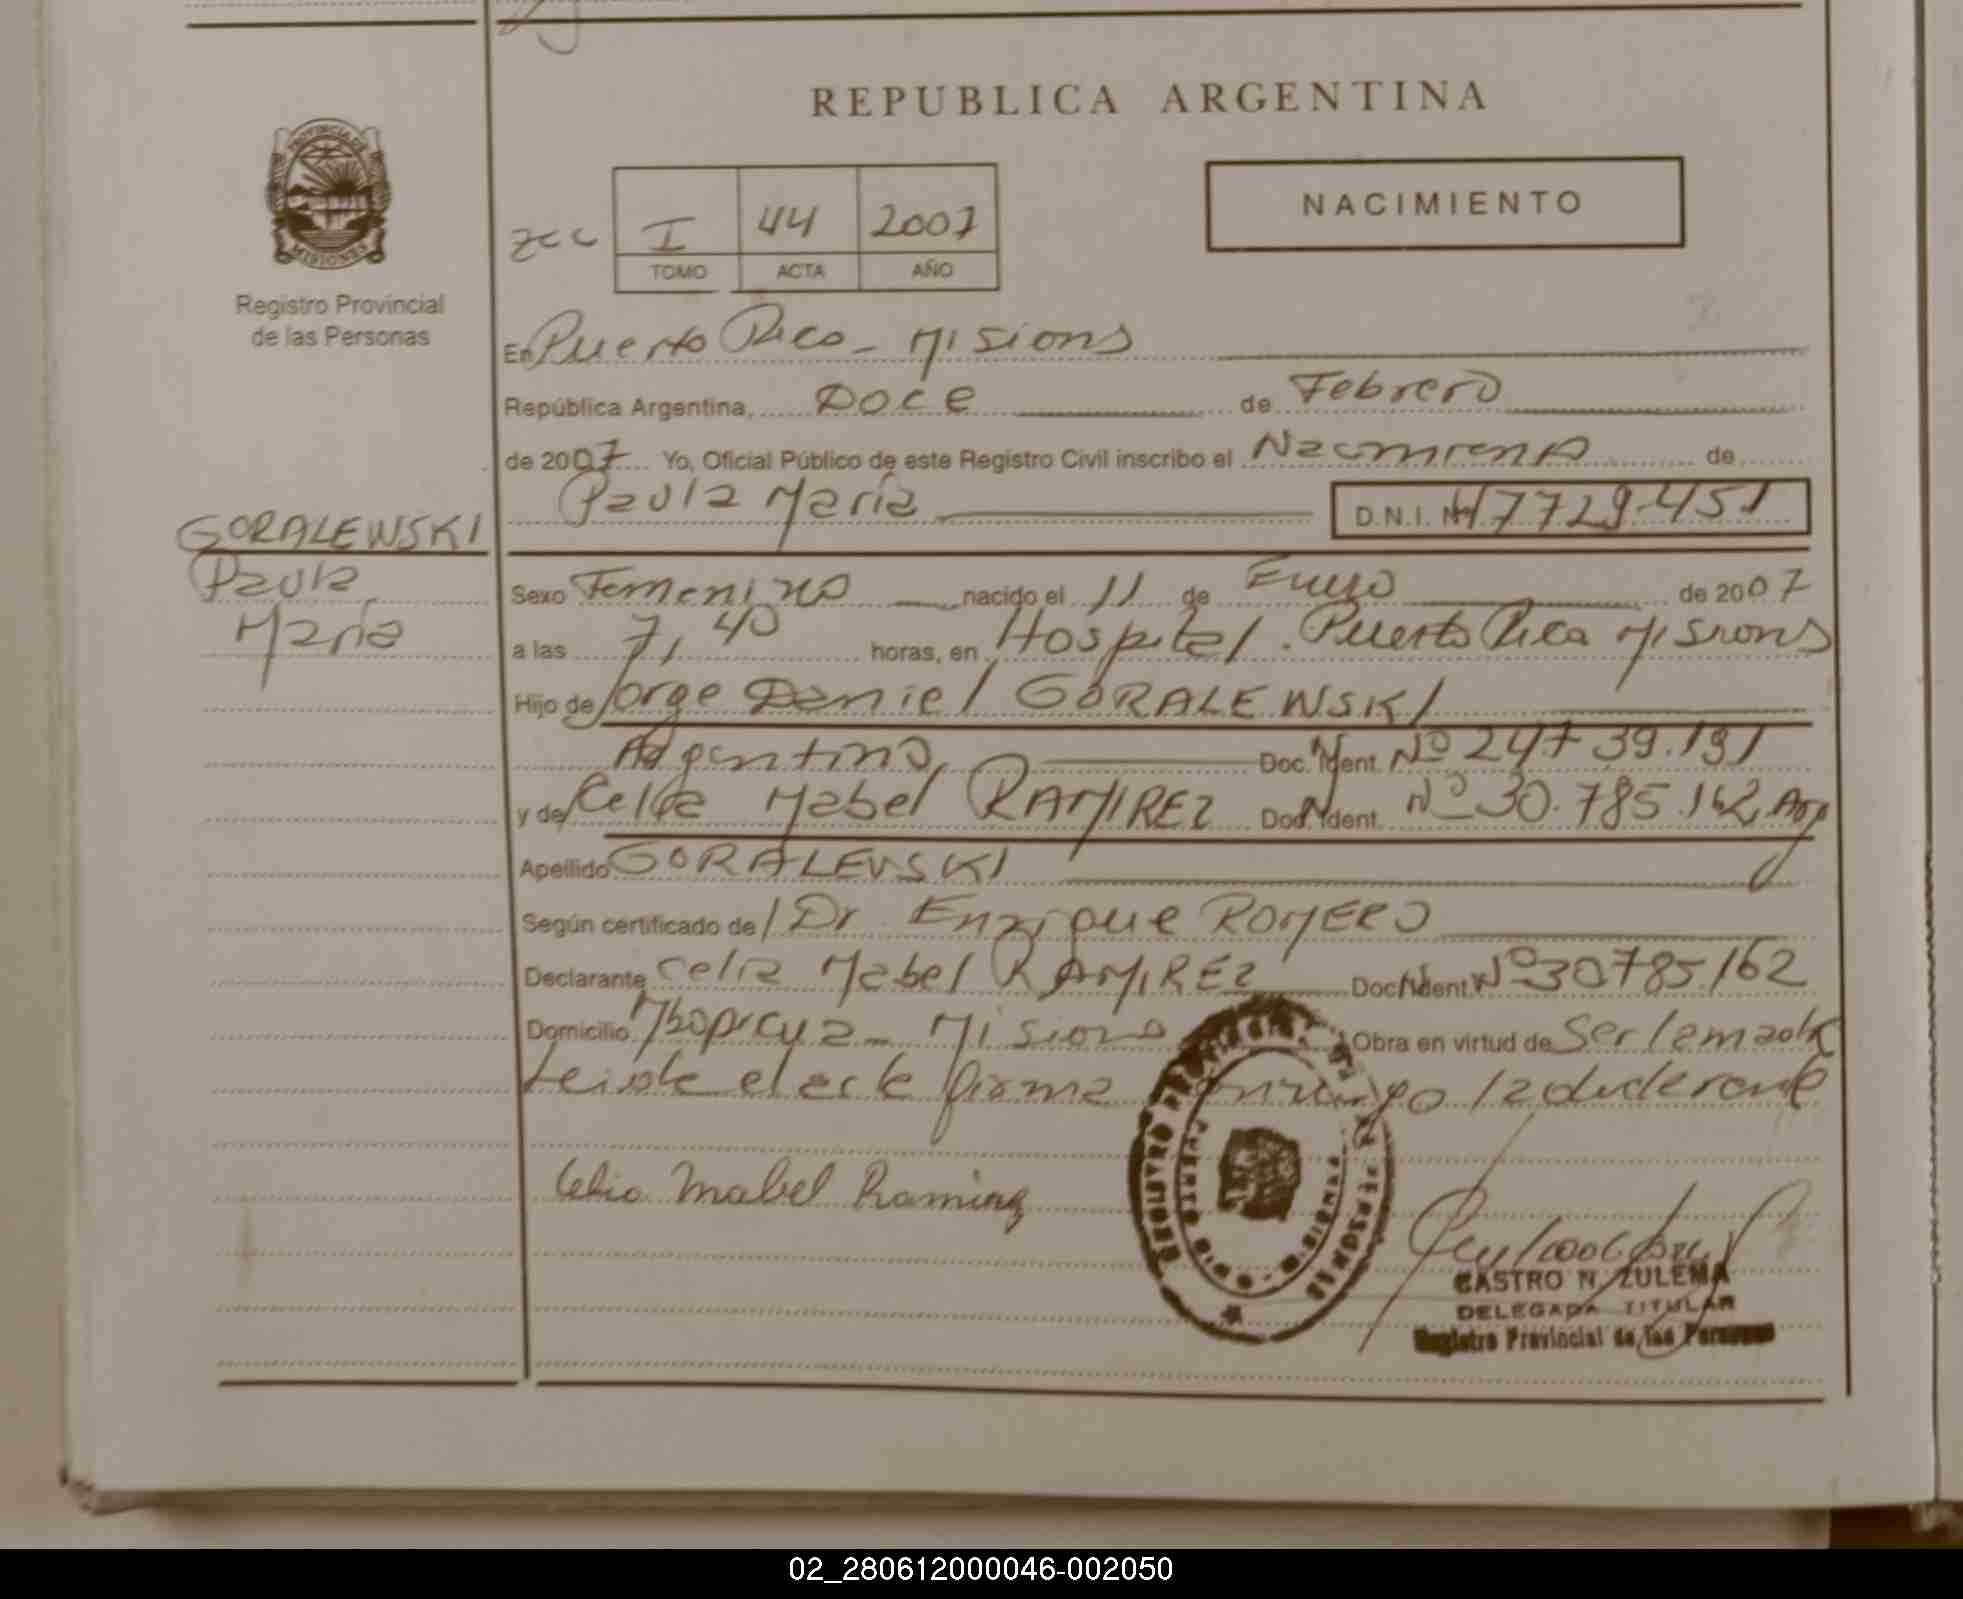 REPUBLICA ARGENTINA
PROVINCIA DE
MISIONES
Registro Provincial
de las Personas
I 44 2007
TOMO ACTA AÑO
NACIMIENTO
En Puerto Rico - Misions
República Argentina, Doce de Febrero
de 2007 Yo, Oficial Público de este Registro Civil inscribo el de
Paula María D.N.I. Nº 47729.451
GORALEWSKI
Paula
María
Sexo Femenino nacido el 11 de Enero de 2007
a las 7,40 horas, en Hospital. Puerto Rico Misions
Hijo de Jorge Daniel GORALEWSKI
Argentino Doc. Ident. Nº 24739.191
y de Celia Mabel RAMIREZ Doc. Ident. Nº 30.785.162 Arg
Apellido GORALEVSKI
Según certificado de Dr. Enrique ROMERO
Declarante Celia Mabel RAMIREZ Doc. Ident. Nº 30785.162
Domicilio Obra en virtud de Ser la madre
leida el acta firma conmigo la declarante
Celia Mabel Ramirez
REGISTRO PROVINCIAL DE LAS PERSONAS
PUERTO RICO - MISIONES
CASTRO N. ZULEMA
DELEGADA TITULAR
Registro Provincial de las Personas
02_280612000046-002050